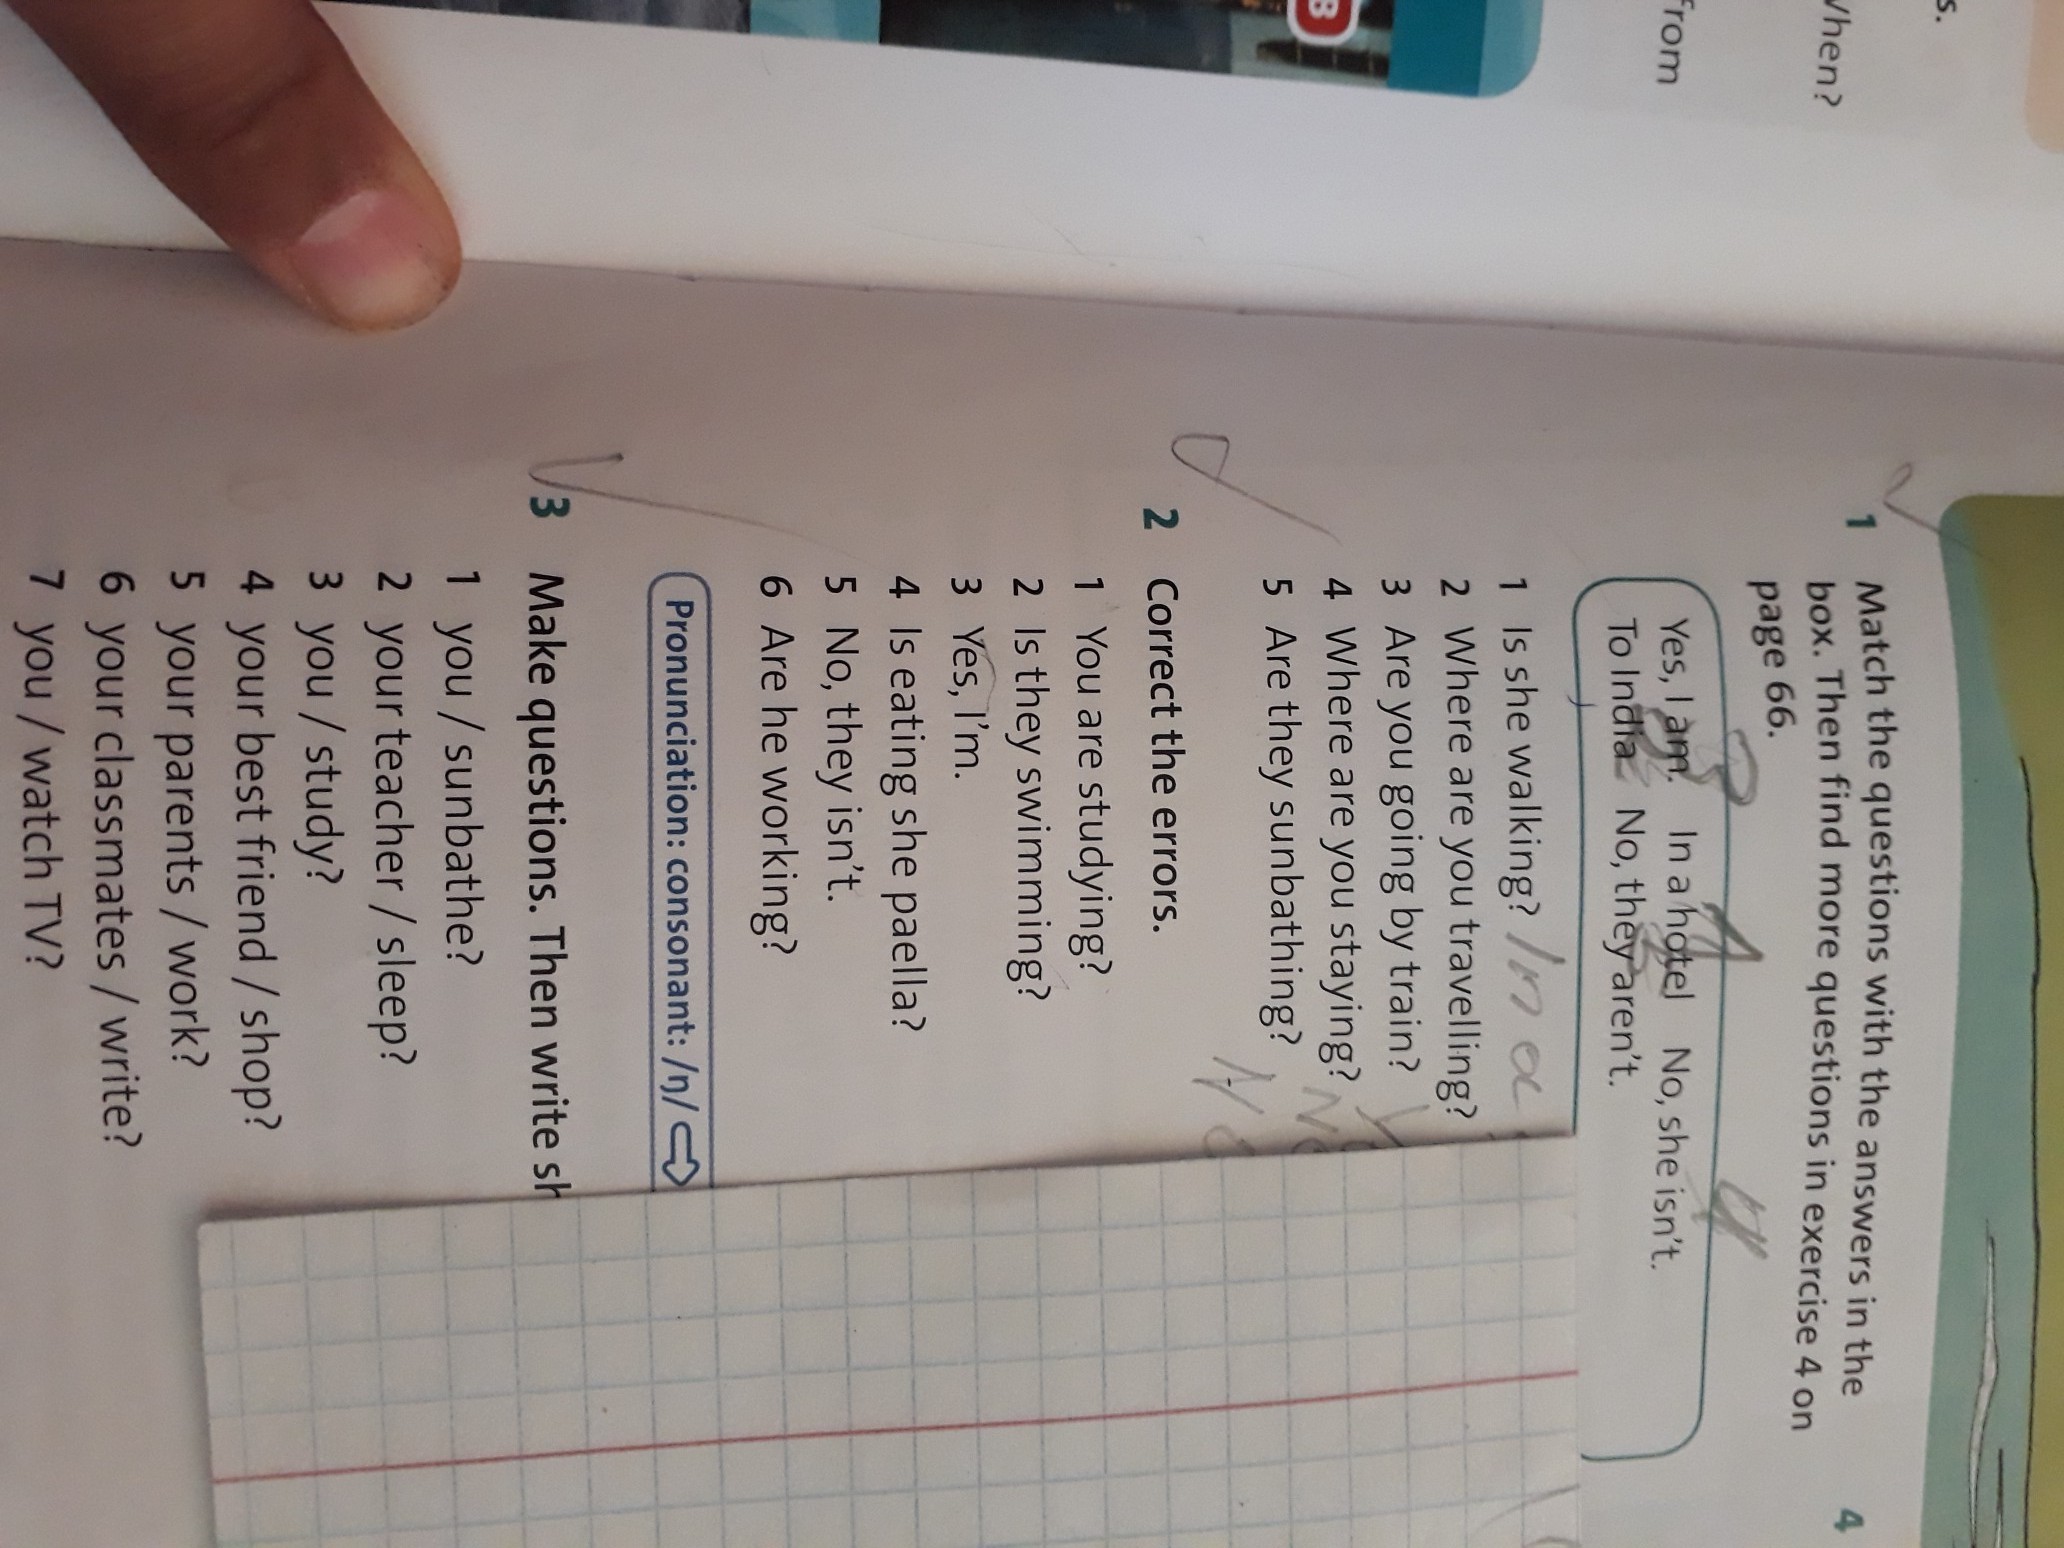 s.
When?
from
B
4
1 Match the questions with the answers in the
box. Then find more questions in exercise 4 on
page 66.
Yes, I am. In a hotel No, she isn't.
To India No, they aren't.
1 Is she walking? In a
2 Where are you travelling?
3 Are you going by train?
4 Where are you staying?
5 Are they sunbathing?
2 Correct the errors.
1 You are studying?
2 Is they swimming?
3 Yes, I'm.
4 Is eating she paella?
5 No, they isn't.
6 Are he working?
Pronunciation: consonant: /ŋ/
3 Make questions. Then write sh
1 you / sunbathe?
2 your teacher / sleep?
3 you / study?
4 your best friend / shop?
5 your parents / work?
6 your classmates / write?
7 you / watch TV?